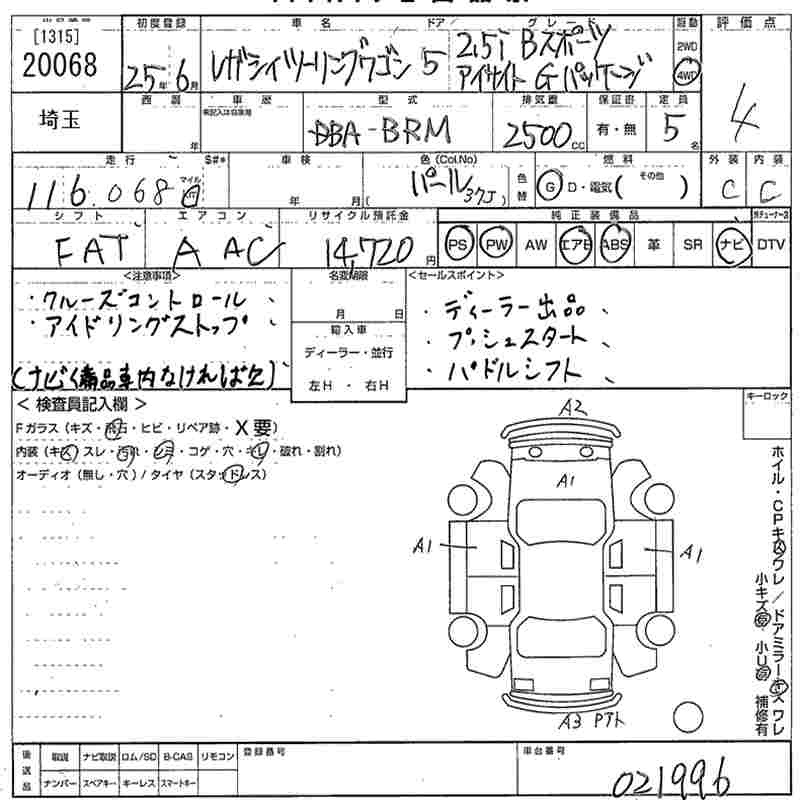 [1315]
20068
初度登録
25年6月
車名
レガシイツーリングワゴン
ドア/
5
グレード
2.5i Bスポーツ
アイサイト Gパッケージ
駆動
2WD
4WD
評価点
4
埼玉
西暦
年
車歴
未記入は自家用
型式
DBA-BRM
排気量
2500CC
保証書
有・無
定員
5名
走行
116,068
マイル
km
S#*
車検
年 月(
色(Col.No)
パール 37J)
色替
燃料
G D・電気(その他 )
外装
C
内装
C
シフト
FAT
エアコン
AAC
リサイクル預託金
14,720円
純正装備品
PS PW AW エアB ABS 革 SR ナビ DTV
<注意事項>
・クルーズコントロール、
・アイドリングストップ、
(ナビ備品車内なければ欠)
名変期限
月 日
輸入車
ディーラー・並行
左H・右H
<セールスポイント>
・ディーラー出品、
・プッシュスタート、
・パドルシフト、
キーロック
<検査員記入欄>
Fガラス(キズ・飛石・ヒビ・リペア跡・X要)
内装(キズ・スレ・汚れ・シミ・コゲ・穴・キレ・破れ・割れ)
オーディオ(無し・穴)/タイヤ(スタッドレス)
A2
A1
A1
A1
A3 Pテト
ホイル・CPキズワレ/ドアミラーキズワレ
小キズ有 小U有 補修有
後送品
取説 ナビ取説 ロム/SD B-CAS リモコン
ナンバー スペアキー キーレス スマートキー
登録番号
車台番号
021996